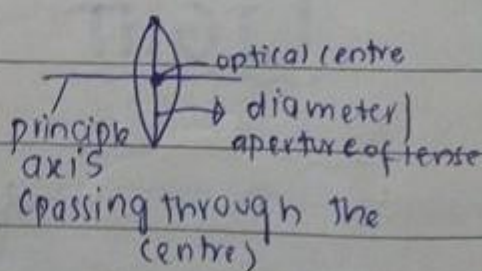 optical centre
diameter/
aperture of lense
principle
axis
(passing through the
centre)